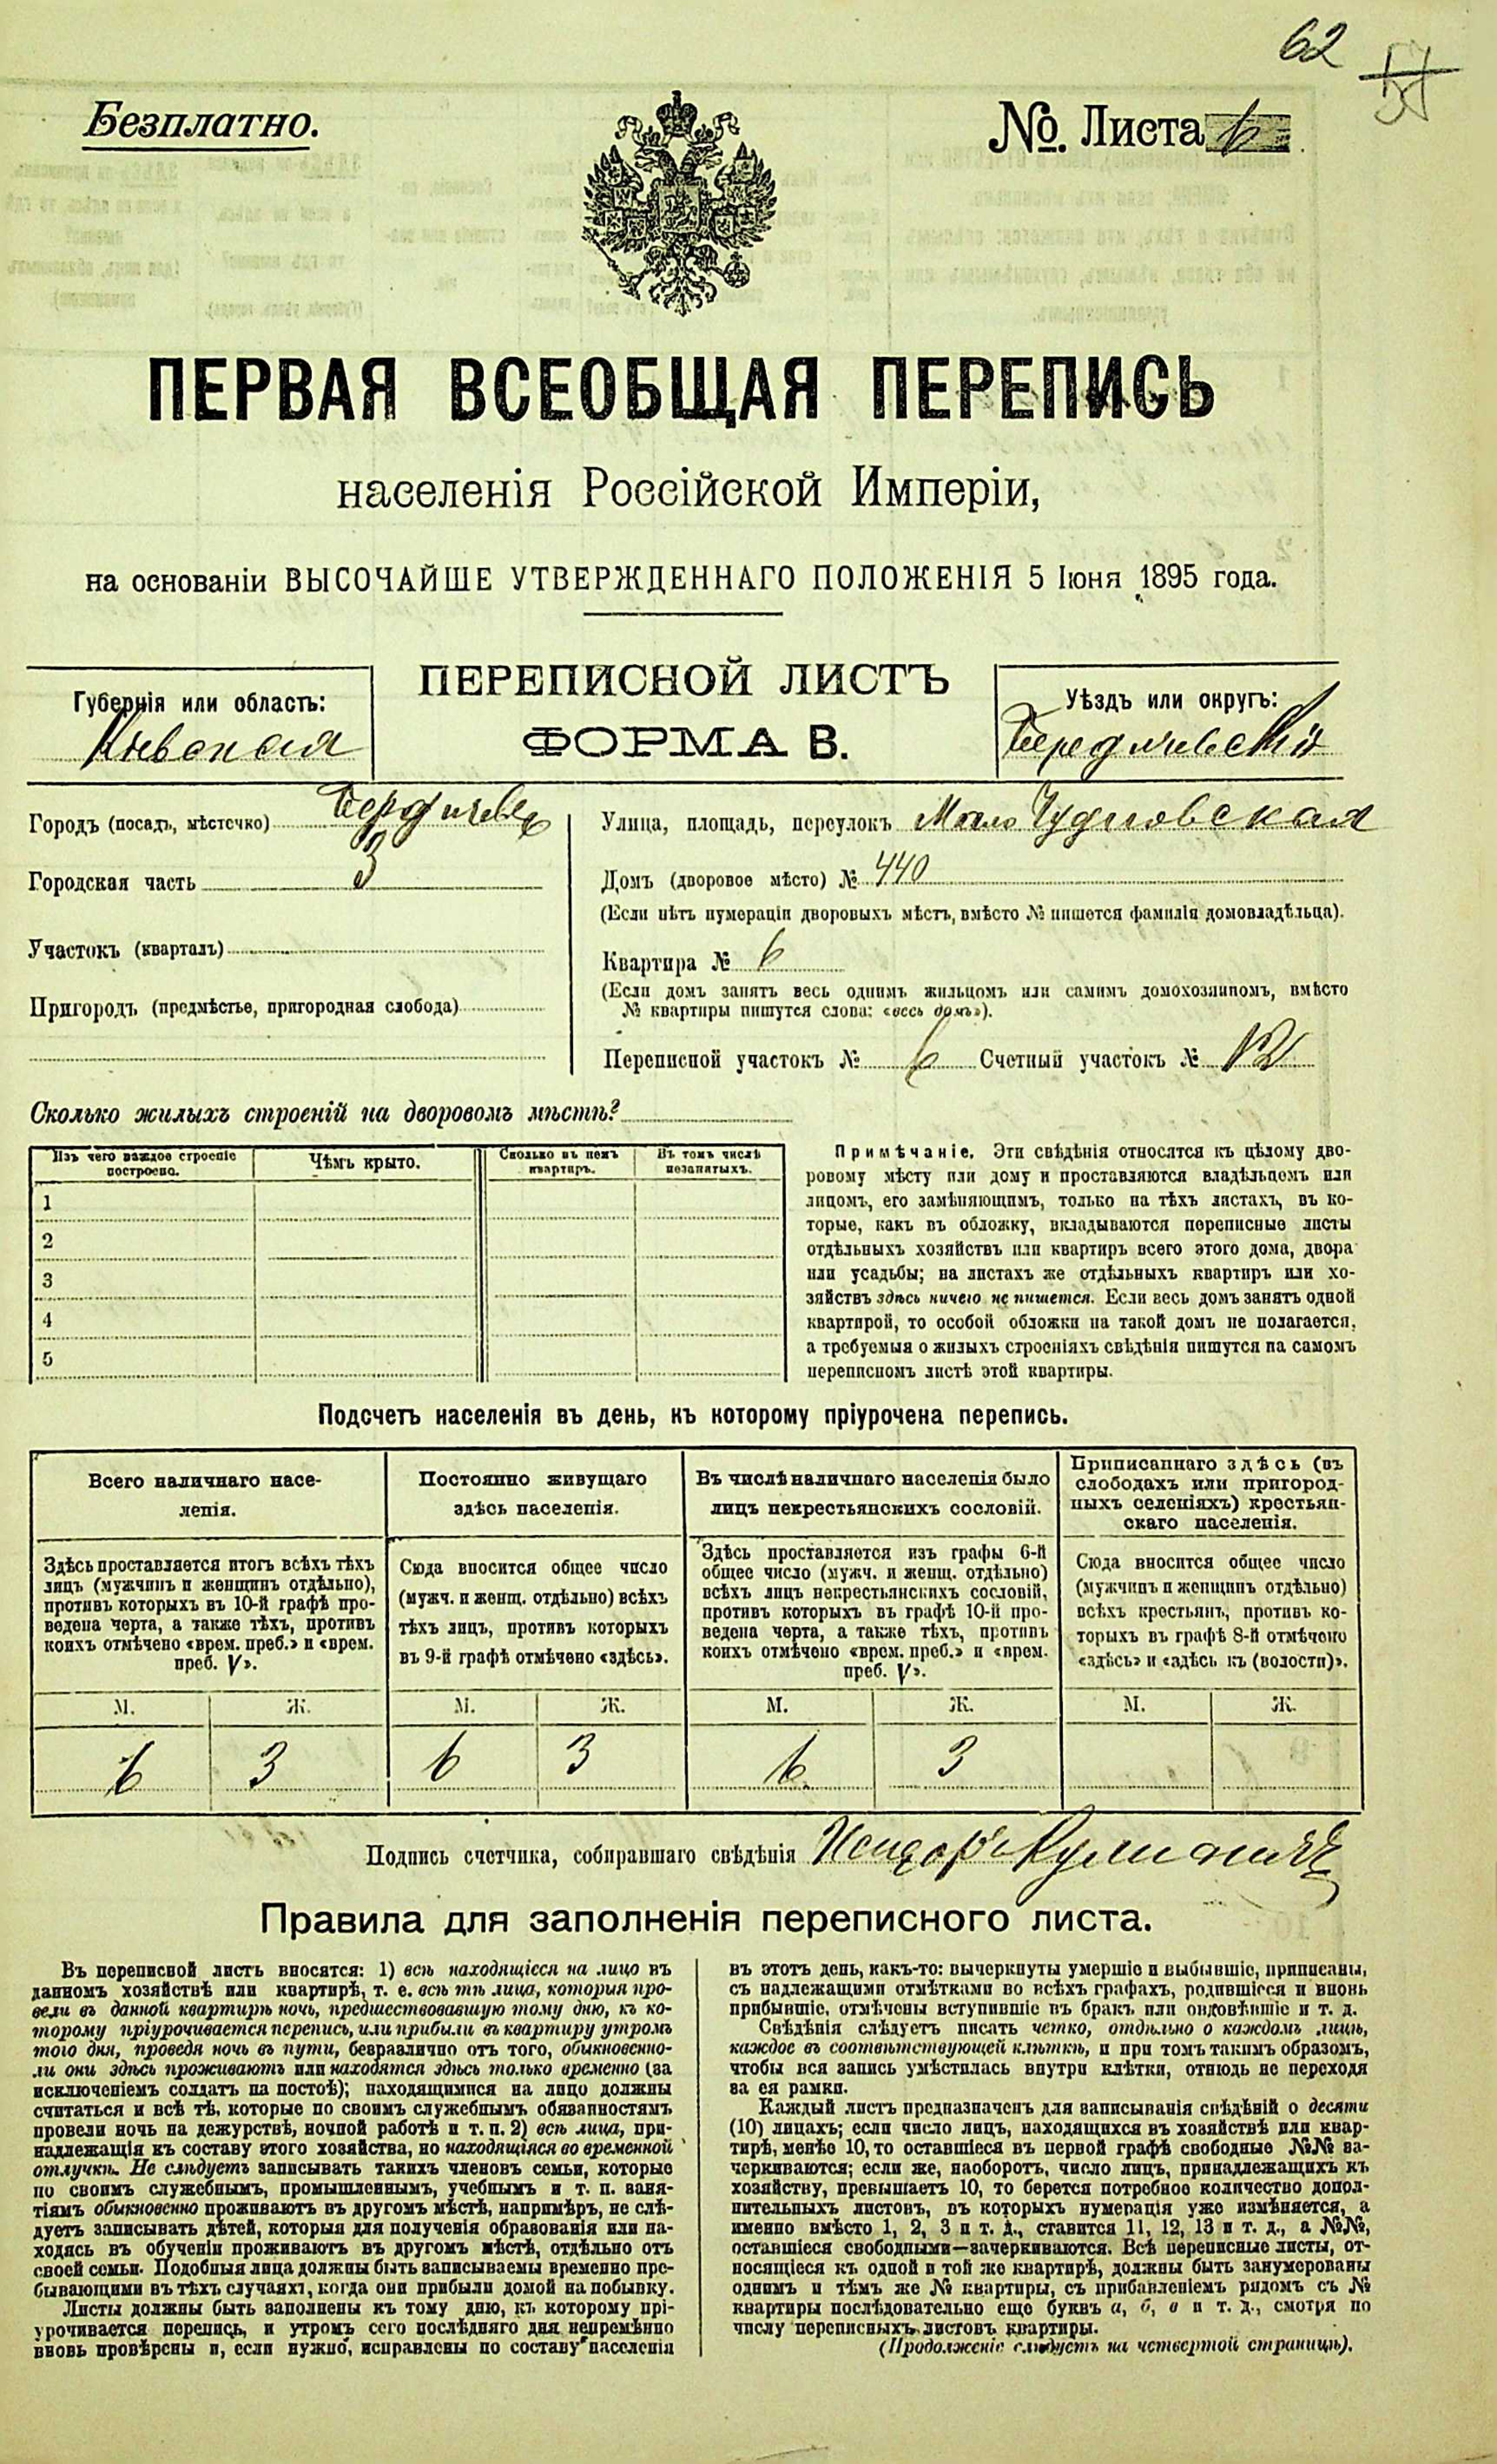 62
Безплатно.
№. Листа 6
ПЕРВАЯ ВСЕОБЩАЯ ПЕРЕПИСЬ
населенія Россійской Имперіи,
на основаніи ВЫСОЧАЙШЕ УТВЕРЖДЕННАГО ПОЛОЖЕНІЯ 5 Іюня 1895 года.
Губернія или область:
Кіевская
ПЕРЕПИСНОЙ ЛИСТЪ
ФОРМА В.
Уѣздъ или округъ:
Бердичевскій
Городъ (посадъ, мѣстечко) Бердичевъ
Городская часть 3
Участокъ (кварталъ)
Пригородъ (предмѣстье, пригородная слобода)
Улица, площадь, переулокъ Мало Чудновская
Домъ (дворовое мѣсто) № 440
(Если нѣтъ нумераціи дворовыхъ мѣстъ, вмѣсто № пишется фамилія домовладѣльца).
Квартира № 6
(Если домъ занятъ весь однимъ жильцомъ или самимъ домохозяиномъ, вмѣсто
№ квартиры пишутся слова: «весь домъ»).
Переписной участокъ № 6 Счетный участокъ № 12
Сколько жилыхъ строеній на дворовомъ мѣстѣ?
Изъ чего каждое строеніе
построено.
Чѣмъ крыто.
Сколько въ немъ
квартиръ.
Въ томъ числѣ
незанятыхъ.
1
2
3
4
5
Примѣчаніе. Эти свѣдѣнія относятся къ цѣлому дво-
ровому мѣсту или дому и проставляются владѣльцемъ или
лицомъ, его замѣняющимъ, только на тѣхъ листахъ, въ ко-
торые, какъ въ обложку, вкладываются переписные листы
отдѣльныхъ хозяйствъ или квартиръ всего этого дома, двора
или усадьбы; на листахъ же отдѣльныхъ квартиръ или хо-
зяйствъ здѣсь ничего не пишется. Если весь домъ занятъ одной
квартирой, то особой обложки на такой домъ не полагается,
а требуемыя о жилыхъ строеніяхъ свѣдѣнія пишутся на самомъ
переписномъ листѣ этой квартиры.
Подсчетъ населенія въ день, къ которому пріурочена перепись.
Всего наличнаго насе-
ленія.
Здѣсь проставляется итогъ всѣхъ тѣхъ
лицъ (мужчинъ и женщинъ отдѣльно),
противъ которыхъ въ 10-й графѣ про-
ведена черта, а также тѣхъ, противъ
коихъ отмѣчено «врем. преб.» и «врем.
преб. V».
Постоянно живущаго
здѣсь населенія.
Сюда вносится общее число
(мужч. и женщ. отдѣльно) всѣхъ
тѣхъ лицъ, противъ которыхъ
въ 9-й графѣ отмѣчено «здѣсь».
Въ числѣ наличнаго населенія было
лицъ некрестьянскихъ сословій.
Здѣсь проставляется изъ графы 6-й
общее число (мужч. и женщ. отдѣльно)
всѣхъ лицъ некрестьянскихъ сословій,
противъ которыхъ въ графѣ 10-й про-
ведена черта, а также тѣхъ, противъ
коихъ отмѣчено «врем. преб.» и «врем.
преб. V».
Приписаннаго здѣсь (въ
слободахъ или пригород-
ныхъ селеніяхъ) крестьян-
скаго населенія.
Сюда вносится общее число
(мужчинъ и женщинъ отдѣльно)
всѣхъ крестьянъ, противъ ко-
торыхъ въ графѣ 8-й отмѣчено
«здѣсь» и «здѣсь къ (волости)».
М. Ж. М. Ж. М. Ж. М. Ж.
6 3 6 3 6 3
Подпись счетчика, собиравшаго свѣдѣнія Исидоръ
Правила для заполненія переписного листа.
Въ переписной листъ вносятся: 1) всѣ находящіеся на лицо въ
данномъ хозяйствѣ или квартирѣ, т. е. всѣ тѣ лица, которыя про-
вели въ данной квартирѣ ночь, предшествовавшую тому дню, къ ко-
торому пріурочивается перепись, или прибыли въ квартиру утромъ
того дня, проведя ночь въ пути, безразлично отъ того, обыкновенно-
ли они здѣсь проживаютъ или находятся здѣсь только временно (за
исключеніемъ солдатъ на постоѣ); находящимися на лицо должны
считаться и всѣ тѣ, которые по своимъ служебнымъ обязанностямъ
провели ночь на дежурствѣ, ночной работѣ и т. п. 2) всѣ лица, при-
надлежащія къ составу этого хозяйства, но находящіяся во временной
отлучкѣ. Не слѣдуетъ записывать такихъ членовъ семьи, которые
по своимъ служебнымъ, промышленнымъ, учебнымъ и т. п. заня-
тіямъ обыкновенно проживаютъ въ другомъ мѣстѣ, напримѣръ, не слѣ-
дуетъ записывать дѣтей, которыя для полученія образованія или на-
ходясь въ обученіи проживаютъ въ другомъ мѣстѣ, отдѣльно отъ
своей семьи. Подобныя лица должны быть записываемы временно пре-
бывающими въ тѣхъ случаяхъ, когда они прибыли домой на побывку.
Листы должны быть заполнены къ тому дню, къ которому прі-
урочивается перепись, и утромъ сего послѣдняго дня непремѣнно
вновь провѣрены и, если нужно, исправлены по составу населенія
въ этотъ день, какъ-то: вычеркнуты умершіе и выбывшіе, приписаны,
съ надлежащими отмѣтками во всѣхъ графахъ, родившіеся и вновь
прибывшіе, отмѣчены вступившіе въ бракъ или овдовѣвшіе и т. д.
Свѣдѣнія слѣдуетъ писать четко, отдѣльно о каждомъ лицѣ,
каждое въ соотвѣтствующей клѣткѣ, и при томъ такимъ образомъ,
чтобы вся запись умѣстилась внутри клѣтки, отнюдь не переходя
за ея рамки.
Каждый листъ предназначенъ для записыванія свѣдѣній о десяти
(10) лицахъ; если число лицъ, находящихся въ хозяйствѣ или квар-
тирѣ, менѣе 10, то оставшіеся въ первой графѣ свободные №№ за-
черкиваются; если же, наоборотъ, число лицъ, принадлежащихъ къ
хозяйству, превышаетъ 10, то берется потребное количество допол-
нительныхъ листовъ, въ которыхъ нумерація уже измѣняется, а
именно вмѣсто 1, 2, 3 и т. д., ставится 11, 12, 13 и т. д., а №№,
оставшіеся свободными—зачеркиваются. Всѣ переписные листы, от-
носящіеся къ одной и той же квартирѣ, должны быть занумерованы
однимъ и тѣмъ же № квартиры, съ прибавленіемъ рядомъ съ №
квартиры послѣдовательно еще буквъ а, б, в и т. д., смотря по
числу переписныхъ листовъ квартиры.
(Продолженіе слѣдуетъ на четвертой страницѣ).